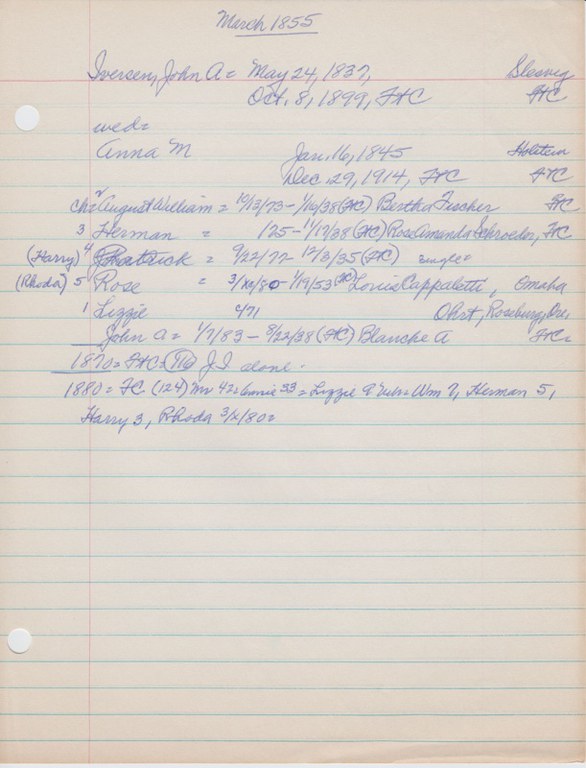 March 1855
Iversen, John A = May 24, 1837, Slesvig
Oct. 8, 1899, FtC FtC
wed=
Anna M Jan. 16, 1845 Holstein
Dec. 29, 1914, FtC FtC
ch= 2 August William = 10/13/73 - 1/16/38 (FtC) Bertha Fischer FtC
3 Herman = /25 - 11/17/38 (FtC) Rose Amanda Schroeder, FtC
(Harry) 4 = 9/22/77 - 12/3/35 (FtC) single=
(Rhoda) 5 Rose = 3/ /80 - 1/19/53 FtC Louis Cappalette, Omaha
1 Lizzie 4/71 Ohrt, Roseburg, Ore,
John A = 1/7/83 - 8/22/38 (FtC) Blanche A FtC=
1870 = FtC = (116) J I alone.
1880 = FC. (124) Mr 42 = Annie 33 = Lizzie 9 Wm 7, Herman 5,
Harry 3, Rhoda 3/ /80=